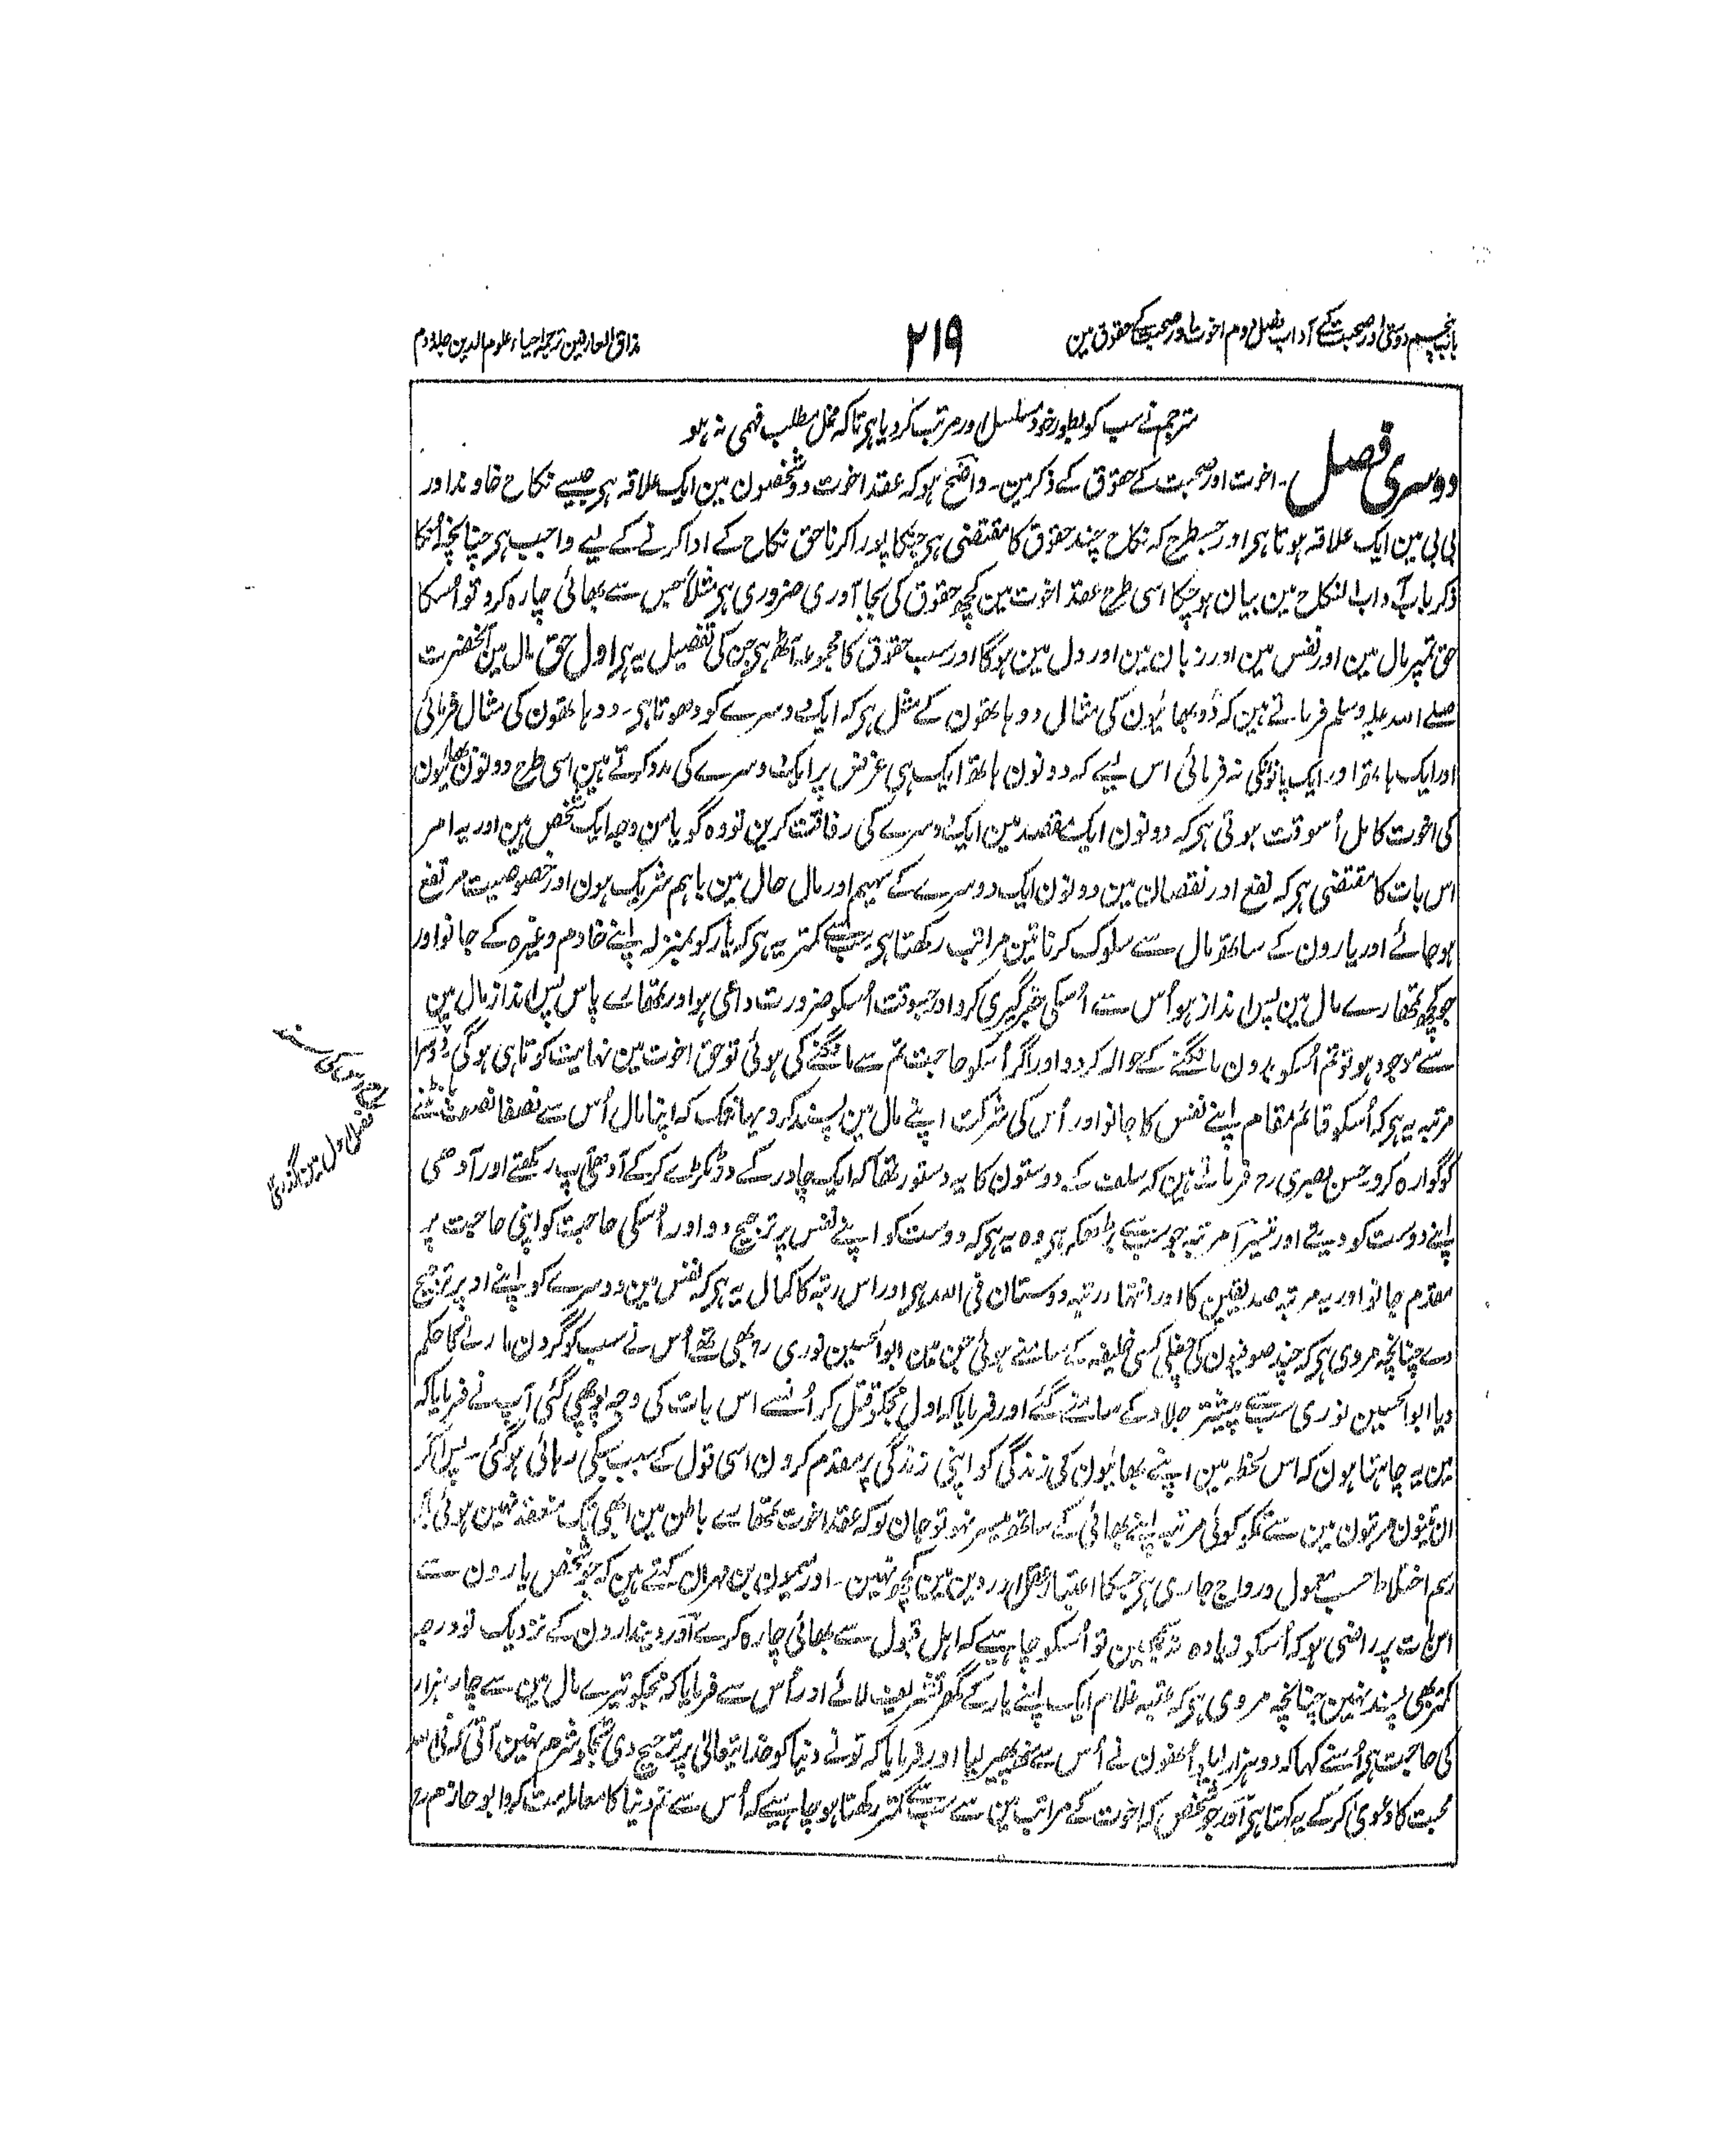 باب پنجم دوستی اور صحبت کے آداب فصل دوم اخوت اور صحبت کے حقوق مین
۲۱۹
مذاق العارفین ترجمہ احیاء علوم الدین جلد دوم
مترجم نے سب کو بطور خود مسلسل اور مرتب کر دیا ہی تاکہ مخل مطلب فہمی نہ ہو
دوسری فصل ۔ اخوت اور صحبت کے حقوق کے ذکر مین ۔ واضح ہو کہ عقد اخوت دو شخصون مین ایک علاقہ ہی جیسے نکاح خاوند اور
بی بی مین ایک علاقہ ہوتا ہی اور جسطرح کہ نکاح چند حقوق کا مقتضی ہی جنکا پورا کرنا حق نکاح کے ادا کرنے کے لیے واجب ہی چنانچہ اُنکا
ذکر باب آداب النکاح مین بیان ہو چکا اسی طرح عقد اخوت مین کچھ حقوق کی بجا آوری ضروری ہی مثلاً جس سے بھائی چارہ کرو تو اُسکا
حق تمپر مال مین اور نفس مین اور زبان مین اور دل مین ہوگا اور سب حقوق کا مجموعہ آٹھ ہی جن کی تفصیل یہ ہی اول حق مال مین آنحضرت
صلے اللہ علیہ وسلم فرماتے ہین کہ دو بھائیون کی مثال دو ہاتھون کے مثل ہی کہ ایک دوسرے کو دھوتا ہی ۔ دو ہاتھون کی مثال فرمائی
اور ایک ہاتھ اور ایک پانوکی نہ فرمائی اس لیے کہ دونون ہاتھ ایک ہی غرض پر ایک دوسرے کی مدد کرتے ہین اسی طرح دونون بھائیون
کی اخوت کامل اُسوقت ہوتی ہی کہ دونون ایک مقصد مین ایک دوسرے کی رفاقت کرین تو وہ گویا من وجہ ایک شخص ہین اور یہ امر
اس بات کا مقتضی ہی کہ نفع اور نقصان مین دونون ایک دوسرے کے سہیم اور مال حال مین باہم شریک ہون اور خصوصیت مرتفع
ہو جائے اور یارون کے ساتھ مال سے سلوک کرنا تین مراتب رکھتا ہی سب سے کمتر یہ ہی کہ یار کو بمنزلہ اپنے خادم وغیرہ کے جانو اور
جو کچھ تمھارے مال مین پس انداز ہو اُس سے اُسکی خبر گیری کرو اور جسوقت اُسکو ضرورت داعی ہو اور تمھارے پاس پس انداز مال مین
سے موجود ہو تو تم اُسکو بدون مانگنے کے حوالہ کر دو اور اگر اُسکو حاجت تم سے مانگنے کی ہوئی تو حق اخوت مین نہایت کوتاہی ہوگی ۔ دوسرا
مرتبہ یہ ہی کہ اُسکو قائم مقام اپنے نفس کا جانو اور اُس کی شرکت اپنے مال مین پسند کرو یہانتک کہ اپنا مال اُس سے نصفا نصف بانٹنے
کو گوارہ کرو حسن بصری رح فرماتے ہین کہ سلف کے دوستون کا یہ دستور تھا کہ ایک چادر کے دو ٹکڑے کرکے آدھی آپ رکھتے اور آدھی
اپنے دوست کو دیتے اور تیسرا مرتبہ جو سب سے بڑھکر ہی وہ یہ ہی کہ دوست کو اپنے نفس پر ترجیح دو اور اُسکی حاجت کو اپنی حاجت پر
مقدم جانو اور یہ مرتبہ صدیقین کا اور انتہا رتبہ دوستان فی اللہ ہی اور اس رتبہ کا کمال یہ ہی کہ نفس مین دوسرے کو اپنے اوپر ترجیح
دے چنانچہ مروی ہی کہ چند صوفیون کی چغلی کسی خلیفہ کے سامنے ہوئی جن مین ابوالحسین نوری رح بھی تھے اُس نے سب کو گردن مارنے کا حکم
دیا ابوالحسین نوری سب سے پیشتر جلاد کے سامنے گئے اور فرمایا کہ اول مجکو قتل کر اُنسے اس بات کی وجہ پوچھی گئی آپ نے فرمایا کہ
مین یہ چاہتا ہون کہ اس لحظہ مین اپنے بھائیون کی زندگی کو اپنی زندگی پر مقدم کرون اسی قول کے سبب سبکی رہائی ہوگئی ۔ پس اگر
ان تینون مرتبون مین سے تمکو کوئی مرتبہ اپنے بھائی کے ساتھ میسر نہو تو جان لو کہ عقد اخوت تمھارے باطن مین ابھی تک منعقد نہین ہوئی
اختلاط حسب معمول و رواج جاری ہی جسکا اعتبار عقل اور دین مین کچھ نہین ۔ اور میمون بن مہران کہتے ہین کہ جو شخص یارون سے
اس بات پر راضی ہو کہ اُسکو زیادہ نہ سمجھین تو اُسکو چاہیے کہ اہل قبول سے بھائی چارہ کرے اور دیندارون کے نزدیک تو درجہ
کمتر بھی پسند نہین چنانچہ مروی ہی کہ عتبہ غلام ایک اپنے یار کے گھر تشریف لائے اور اُس سے فرمایا کہ مجکو تیرے مال مین سے چار ہزار
کی حاجت ہی اُسنے کہا کہ دو ہزار اُنھون نے اُس سے منھ پھیر لیا اور فرمایا کہ تونے دنیا کو خدائتعالیٰ پر ترجیح دی تجکو شرم نہین آتی کہ فی اللہ
محبت کا دعویٰ کرکے یہ کہتا ہی اور جو شخص کہ اخوت کے مراتب مین سے سب سے کمتر رکھتا ہو چاہیے کہ اُس سے تم دنیا کا معاملہ مت کرو ابو حازم رح
فصل اول مین گذری